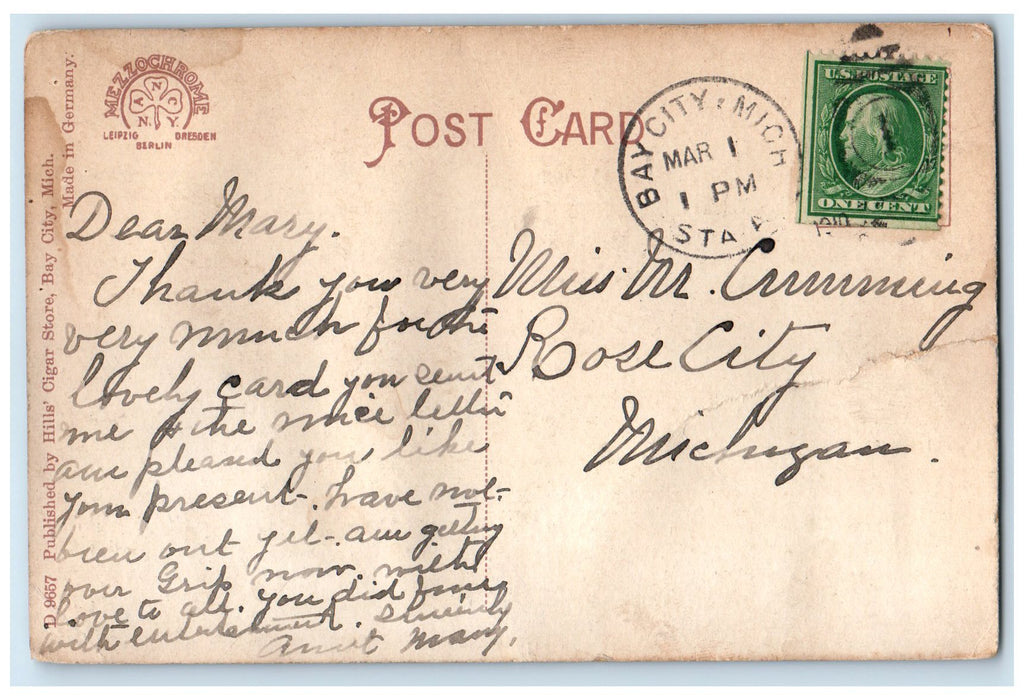 MEZZOCHROME
A N C
N. Y.
LEIPZIG DRESDEN
BERLIN
POST CARD
BAY CITY, MICH
MAR 1
1 PM
STA
U.S. POSTAGE
1
ONE CENT
D 9657 Published by Hills' Cigar Store, Bay City, Mich.
Made in Germany.
Dear Mary.
Thank you very
very much for the
lovely card you sent
me & the nice letter
am pleased you like
your present. have not
been out yet. am getting
over Grip now. with
love to all. you did fine
with entertainment. Sincerely
Aunt Mary.
Miss M. Crumming
Rose City
Michigan.